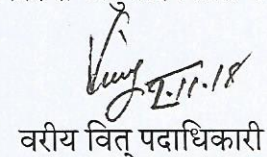 2.11.18
वरीय वित् पदाधिकारी